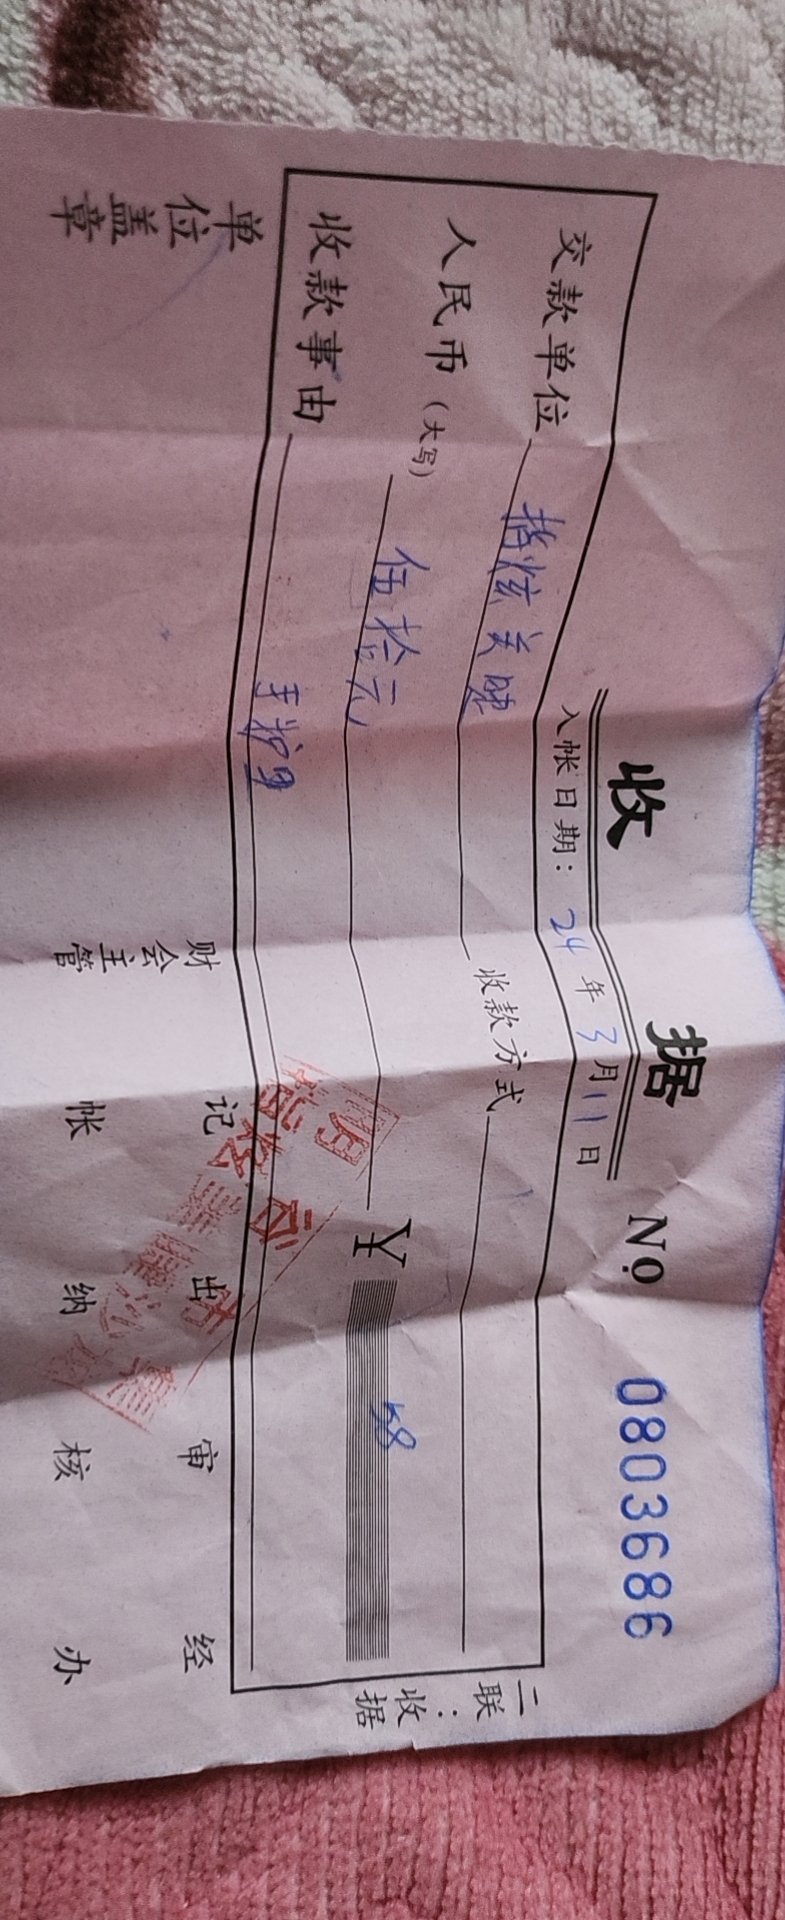 收 据 № 0803686
入帐日期: 24 年 3 月 11 日
交款单位 指炫美睫 收款方式
人民币(大写) 伍拾元 ¥ 58
收款事由 手护理
二联:收据
单位盖章 财会主管 记帐 出纳 审核 经办